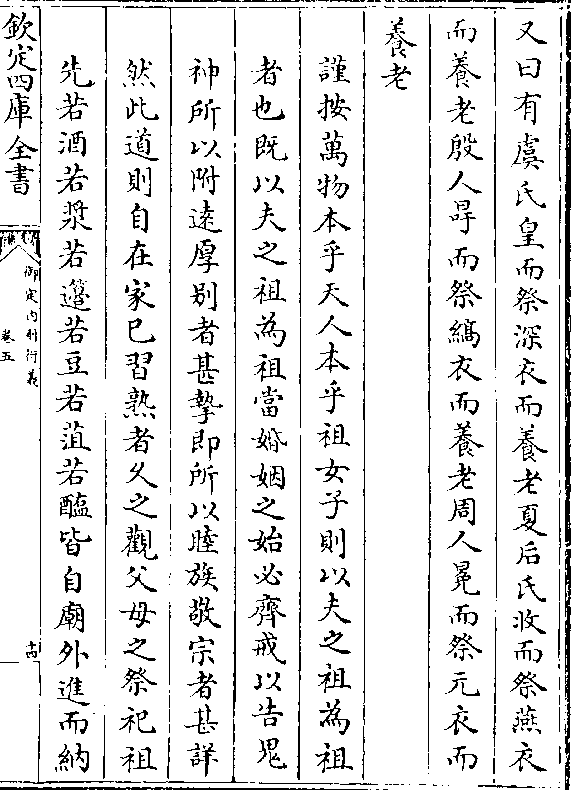 又曰有虞氏皇而祭深衣而養老夏后氏收而祭燕衣
而養老殷人冔而祭縞衣而養老周人冕而祭元衣而
養老
謹按萬物本乎天人本乎祖女子則以夫之祖為祖
者也既以夫之祖為祖當婚姻之始必齊戒以告鬼
神所以附逺厚别者甚摯即所以睦族敬宗者甚詳
然此道則自在家已習熟者乆之觀父母之祭祀祖
先若酒若漿若籩若豆若菹若醢皆自廟外進而納
欽定四庫全書
御定内則衍義
卷五
十四